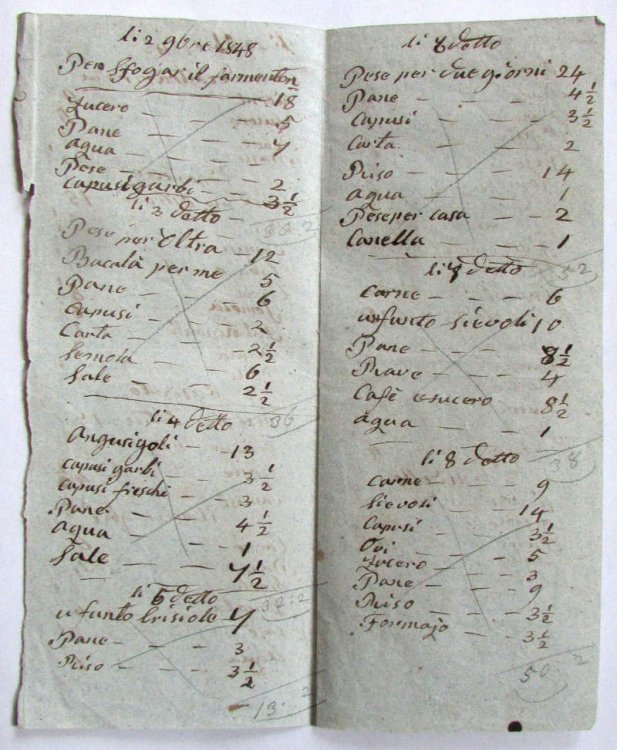 li 2 9bre 1848
Per sfogar il formenton
18
Zucero — — 5
Pane — — — 7
agua — — —
Pese — — — 2
Capusi garbi — 3 1/2
38:2
li 3 detto —
Pese per Oltra — 12
Bacalà per me 5
Pane — — — 6
Capusi — — 2
Carta — — — 2 1/2
Semola — — 6
Sale — — — 2 1/2
36
li 4 detto
Angusigoli — 13
Capusi garbi — 3 1/2
capusi freschi — 3
Pane — — — 4 1/2
agua — — — 1
Sale — — — 7 1/2
32:2
li 5 detto
u funto Grisiole 7
Pane — — 3
Riso — — — 3 1/2
13:2
li 6 detto
Pese per due giorni 24
Pane — — — 4 1/2
Capusi — — — 3 1/2
Carta — — — 2
Riso — — — 14
agua — — — 1
Pese per casa — 2
Canella — — — 1
:2
li 7 detto
Carne — — — 6
un funto Sievoli 10
Pane — — — 8 1/2
Rave — — — 4
Cafè e sucero 8 1/2
agua — — — 1
38
li 8 detto
Carne — — — 9
Sievoli — — — 14
Capusi — — — 3 1/2
Ovi — — — 5
Zucero — — — 3
Pane — — — 9
Riso — — — 3 1/2
Formajo — — — 3 1/2
50:2